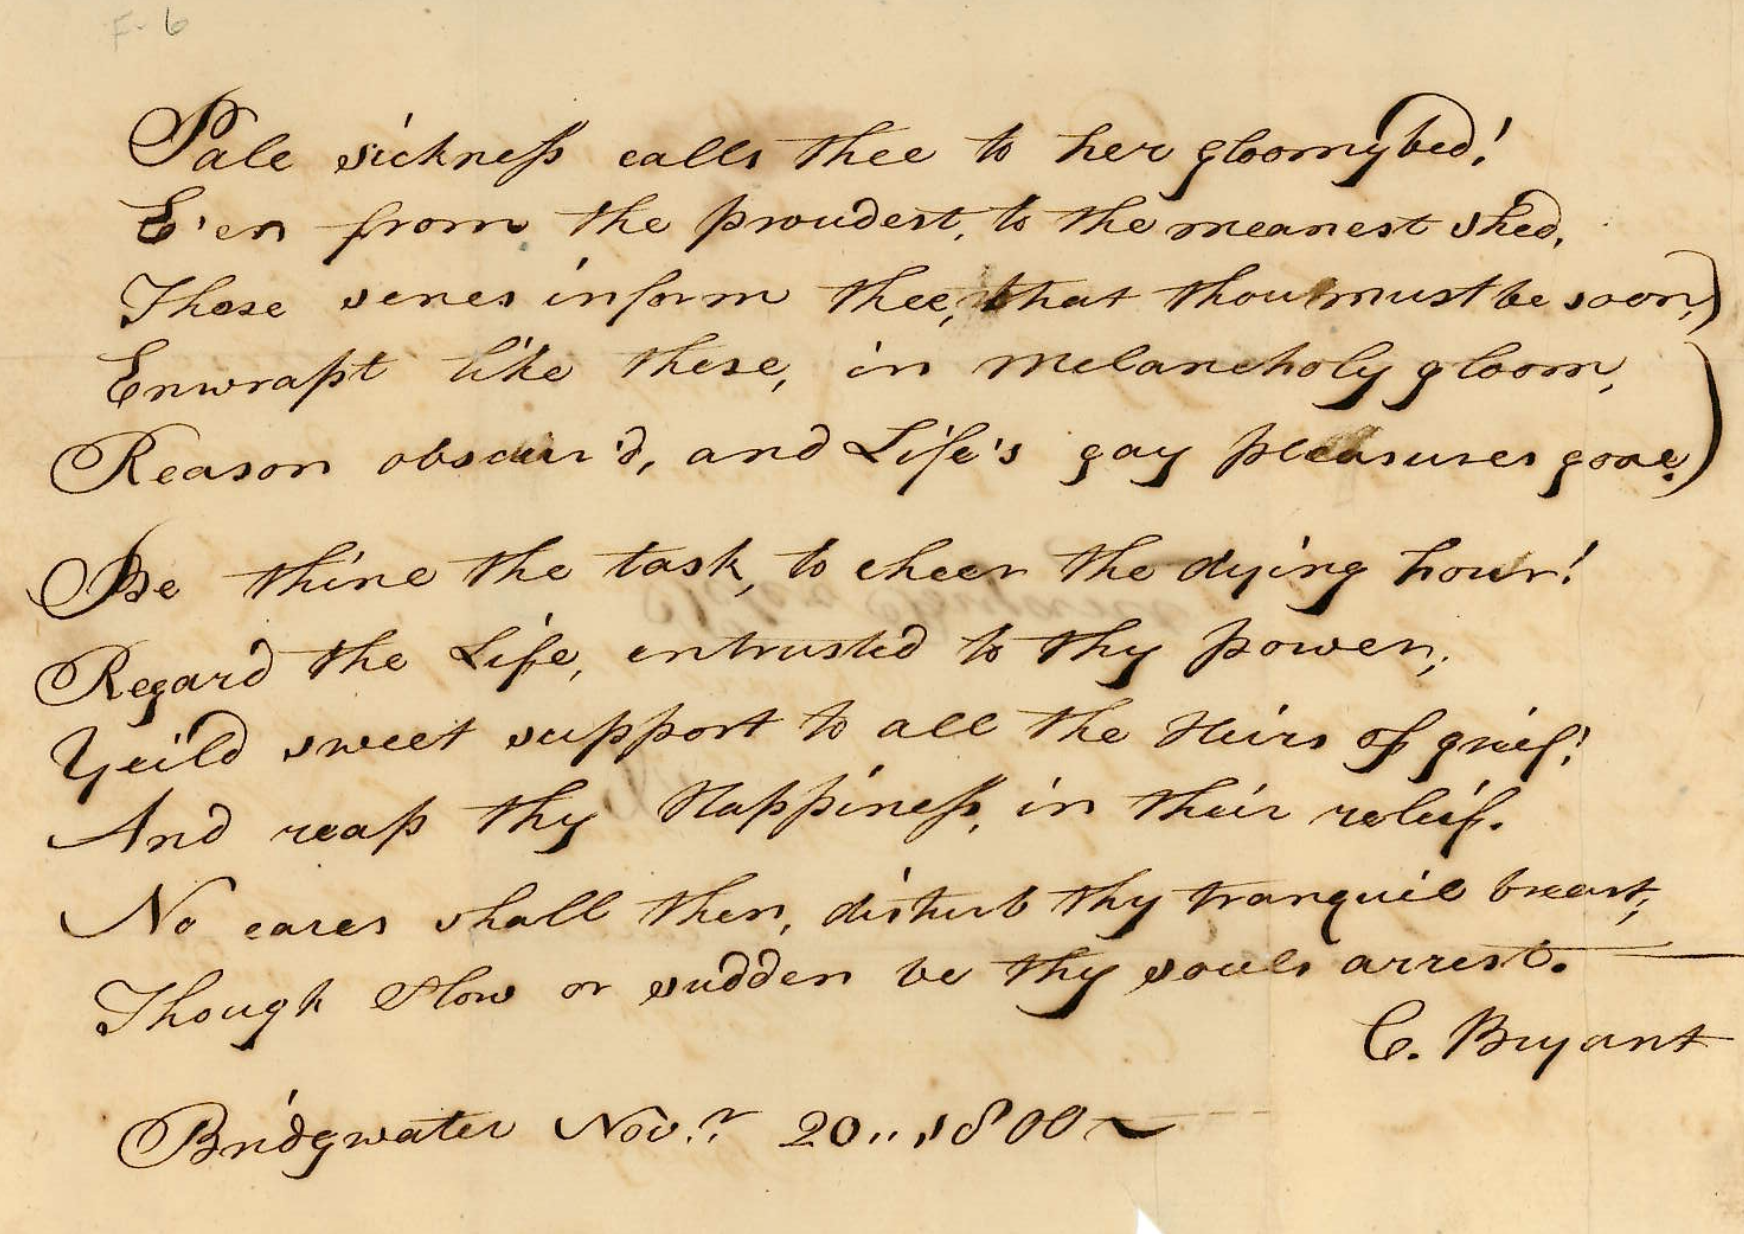 F-6
Pale sickness calls thee to her gloomy bed!
E'en from the proudest, to the meanest shed,
These senes inform thee, that thou must be soon,)
Enwrapt like these, in melancholy gloom,
Reason obscur'd, and Life's gay pleasures gone.)
Be thine the task, to cheer the dying hour!
Regard the Life, entrusted to thy power;
Yeild sweet support to all the Heirs of grief!
And reap thy Happiness, in their releif.
No cares shall then, disturb thy tranquil breast;
Though slow or sudden be thy souls arrest.
C. Bryant
Bridgwater Nov.r 20,, 1800